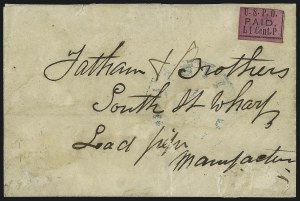 U.S.P.O.
PAID.
1 Cent.
Tatham & Brothers
South St Wharf
Lead pipe
Manufacturers